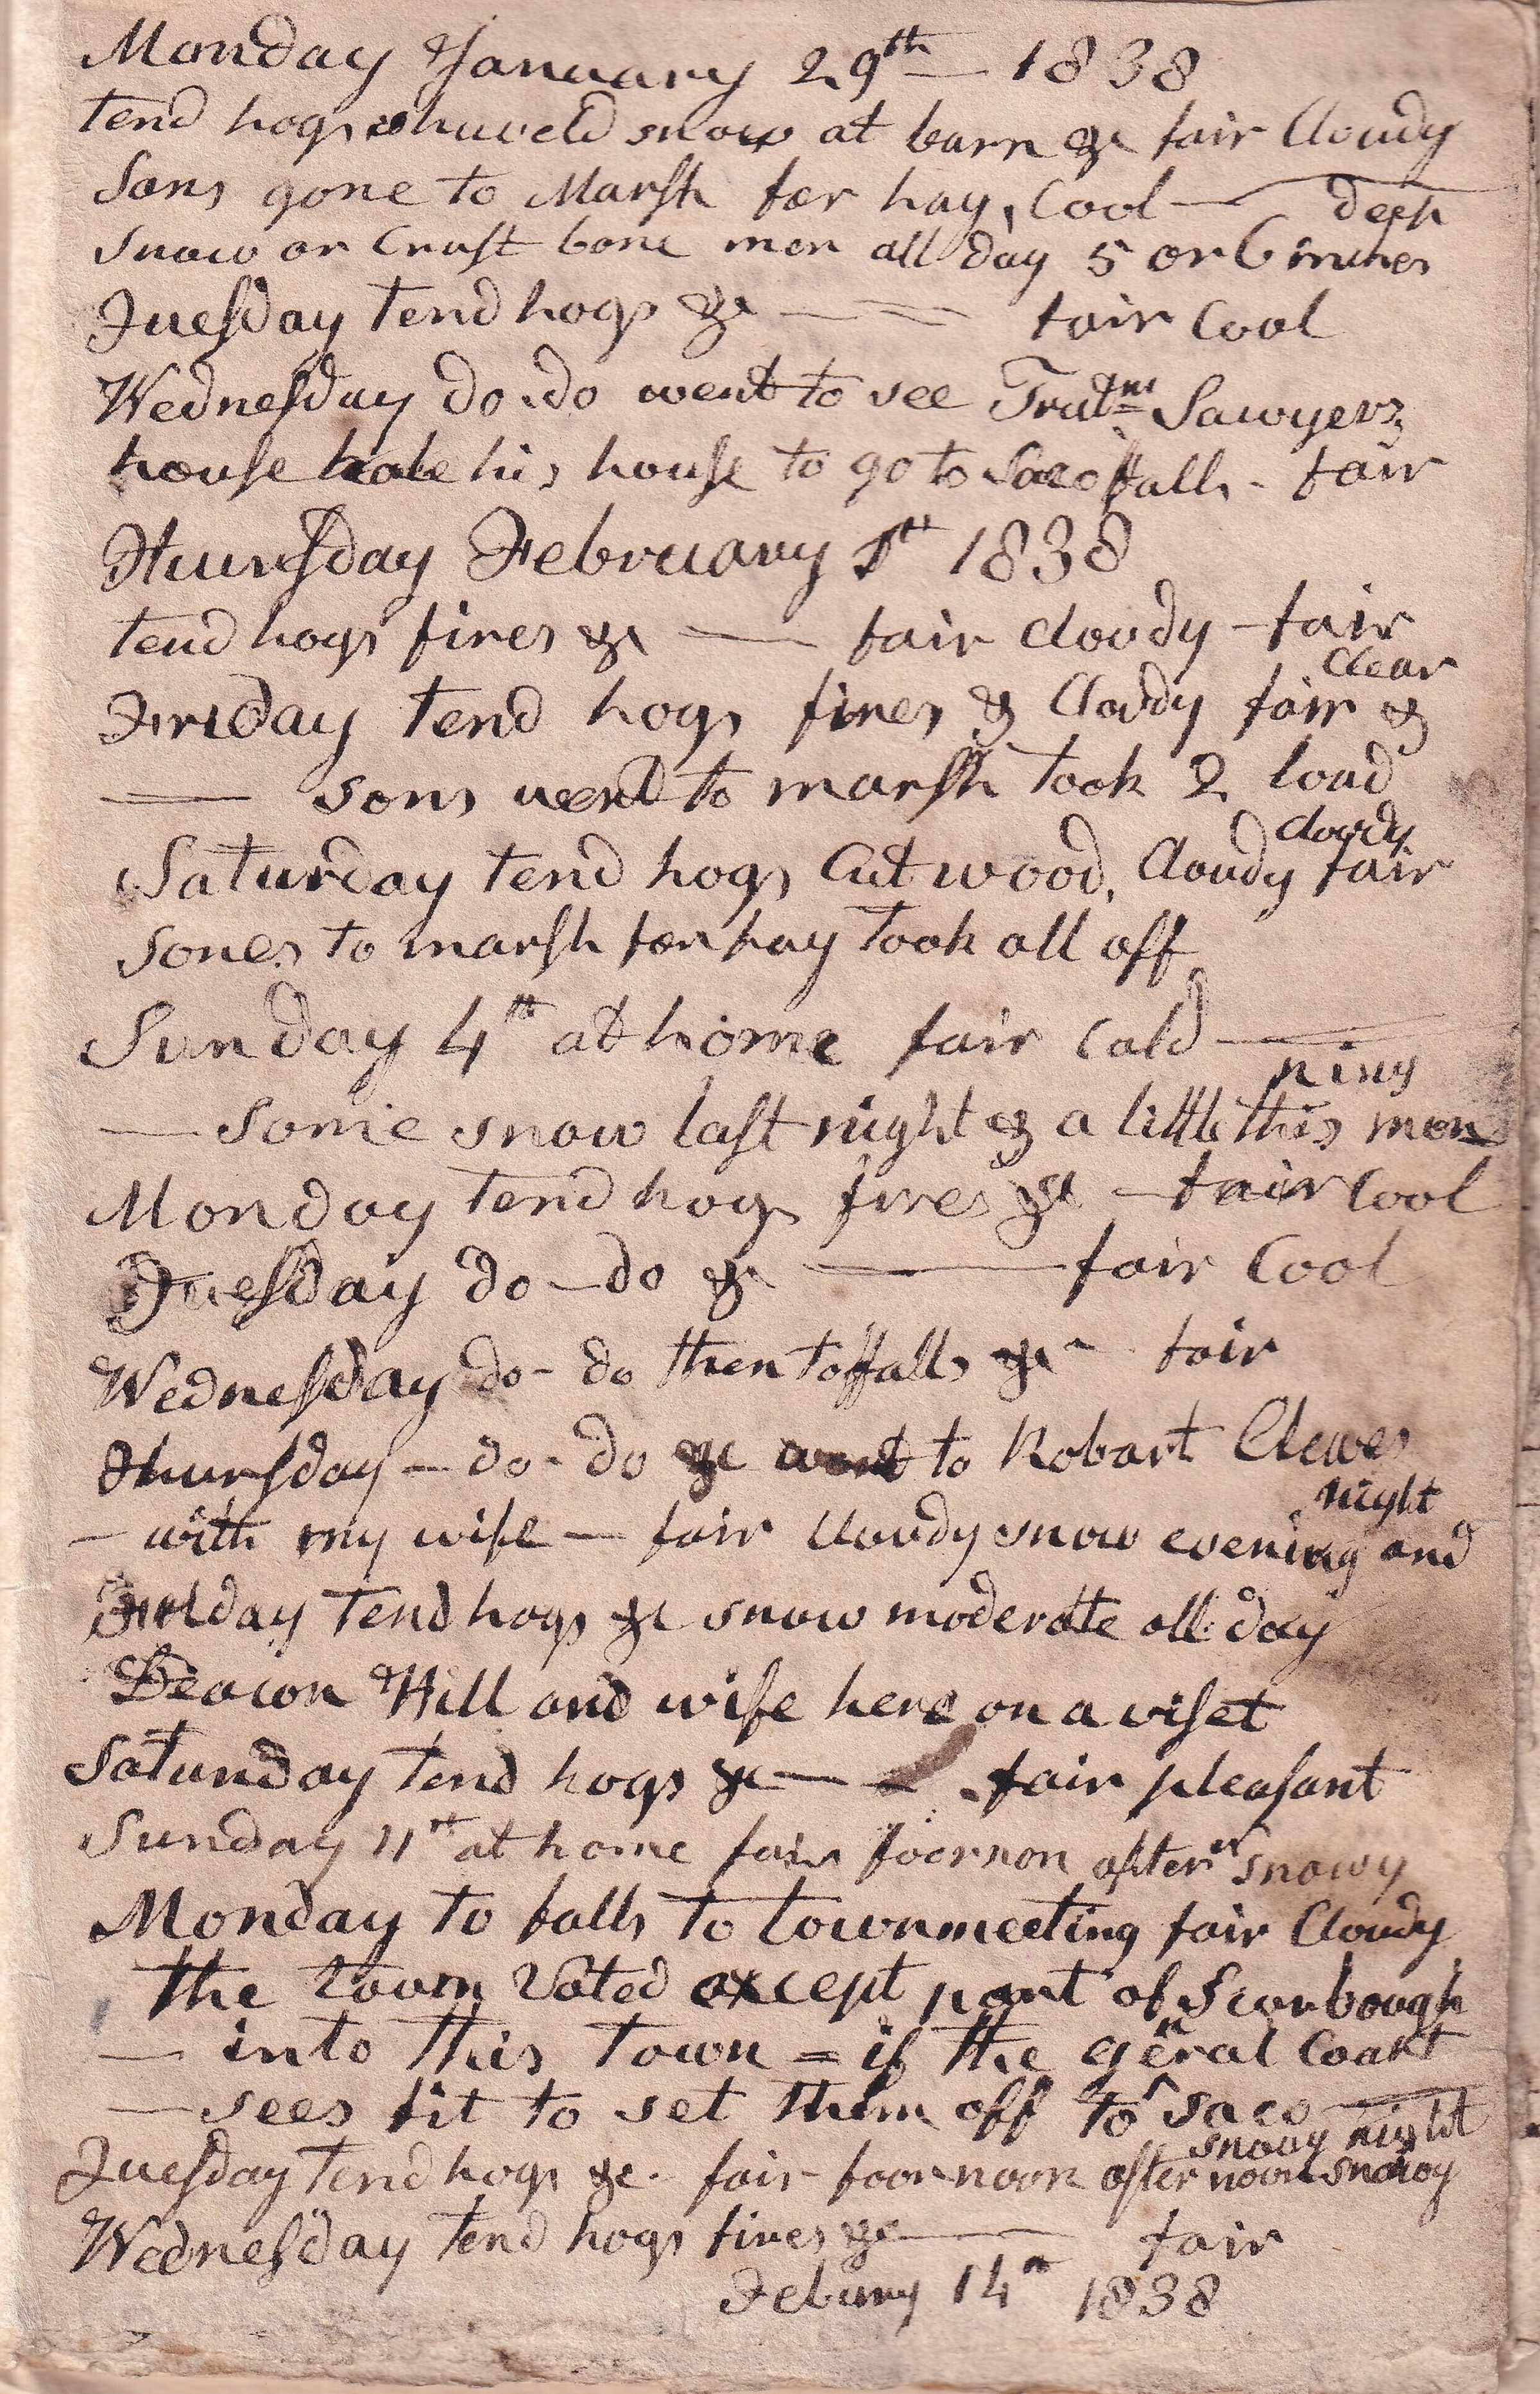 Monday January 29th 1838
tend hogs shuveld snow at barn &c fair Cloudy
Sons gone to Marsh for hay, Cool — deep
snow or Crust bore men all day 5 or 6 inches
Tuesday tend hogs &c — = fair Cool
Wednesday do. do went to see Sawyers
house his house to go to Saco falls - fair
Thursday February 1st 1838
tend hogs fires &c — fair cloudy - fair
clear
Friday tend hogs fires & Cloudy fair &
— sons went to marsh took 2 load
cloudy
Saturday tend hogs Cut wood, Cloudy fair
sones to marsh for hay took all off
Sunday 4th at home fair Cold —
ning
— Some snow last night & a little this mor
Monday tend hogs fires &c — fair Cool
Tuesday do - do &c — fair Cool
Wednesday do - do then to falls &c - fair
Thursday - do - do &c went to Robart Clewes
night
— with my wife — fair Cloudy snow evening and
Friday tend hogs &c snow moderate all day
Deacon Hill and wife here on a viset
Saturday tend hogs &c — - fair pleasant
Sunday 11th at home fair foornon aftern snowy
Monday to falls to townmeeting fair Cloudy
the town Voted except part of Scarbough
— into this town = if the gen^eral Coart
— sees fit to set them off to Saco —
snowy night
Tuesday tend hogs &c. fair foornoon afternoon snowy
Wednesday tend hogs fires &c — fair
Febuary 14th 1838